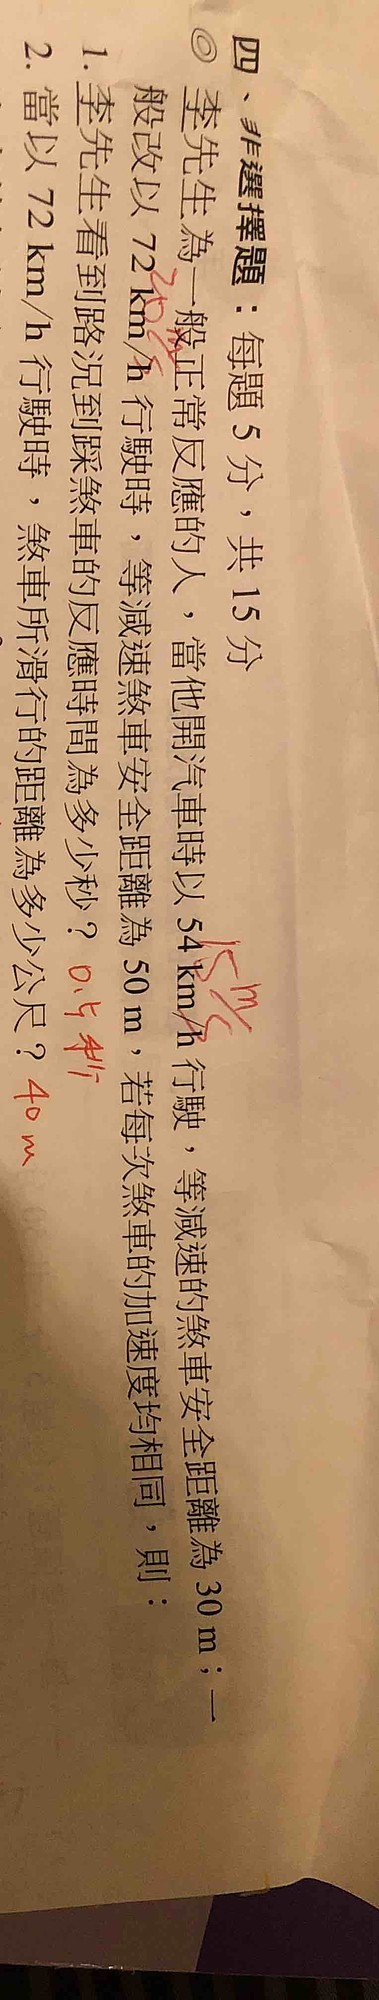 四、非選擇題：每題 5 分，共 15 分
◎ 李先生為一般正常反應的人，當他開汽車時以 54 km/h 行駛，等減速的煞車安全距離為 30 m；一
15 m/s
般改以 72 km/h 行駛時，等減速煞車安全距離為 50 m，若每次煞車的加速度均相同，則：
20 m/s
1. 李先生看到路況到踩煞車的反應時間為多少秒？ 0.5 秒
2. 當以 72 km/h 行駛時，煞車所滑行的距離為多少公尺？ 40 m